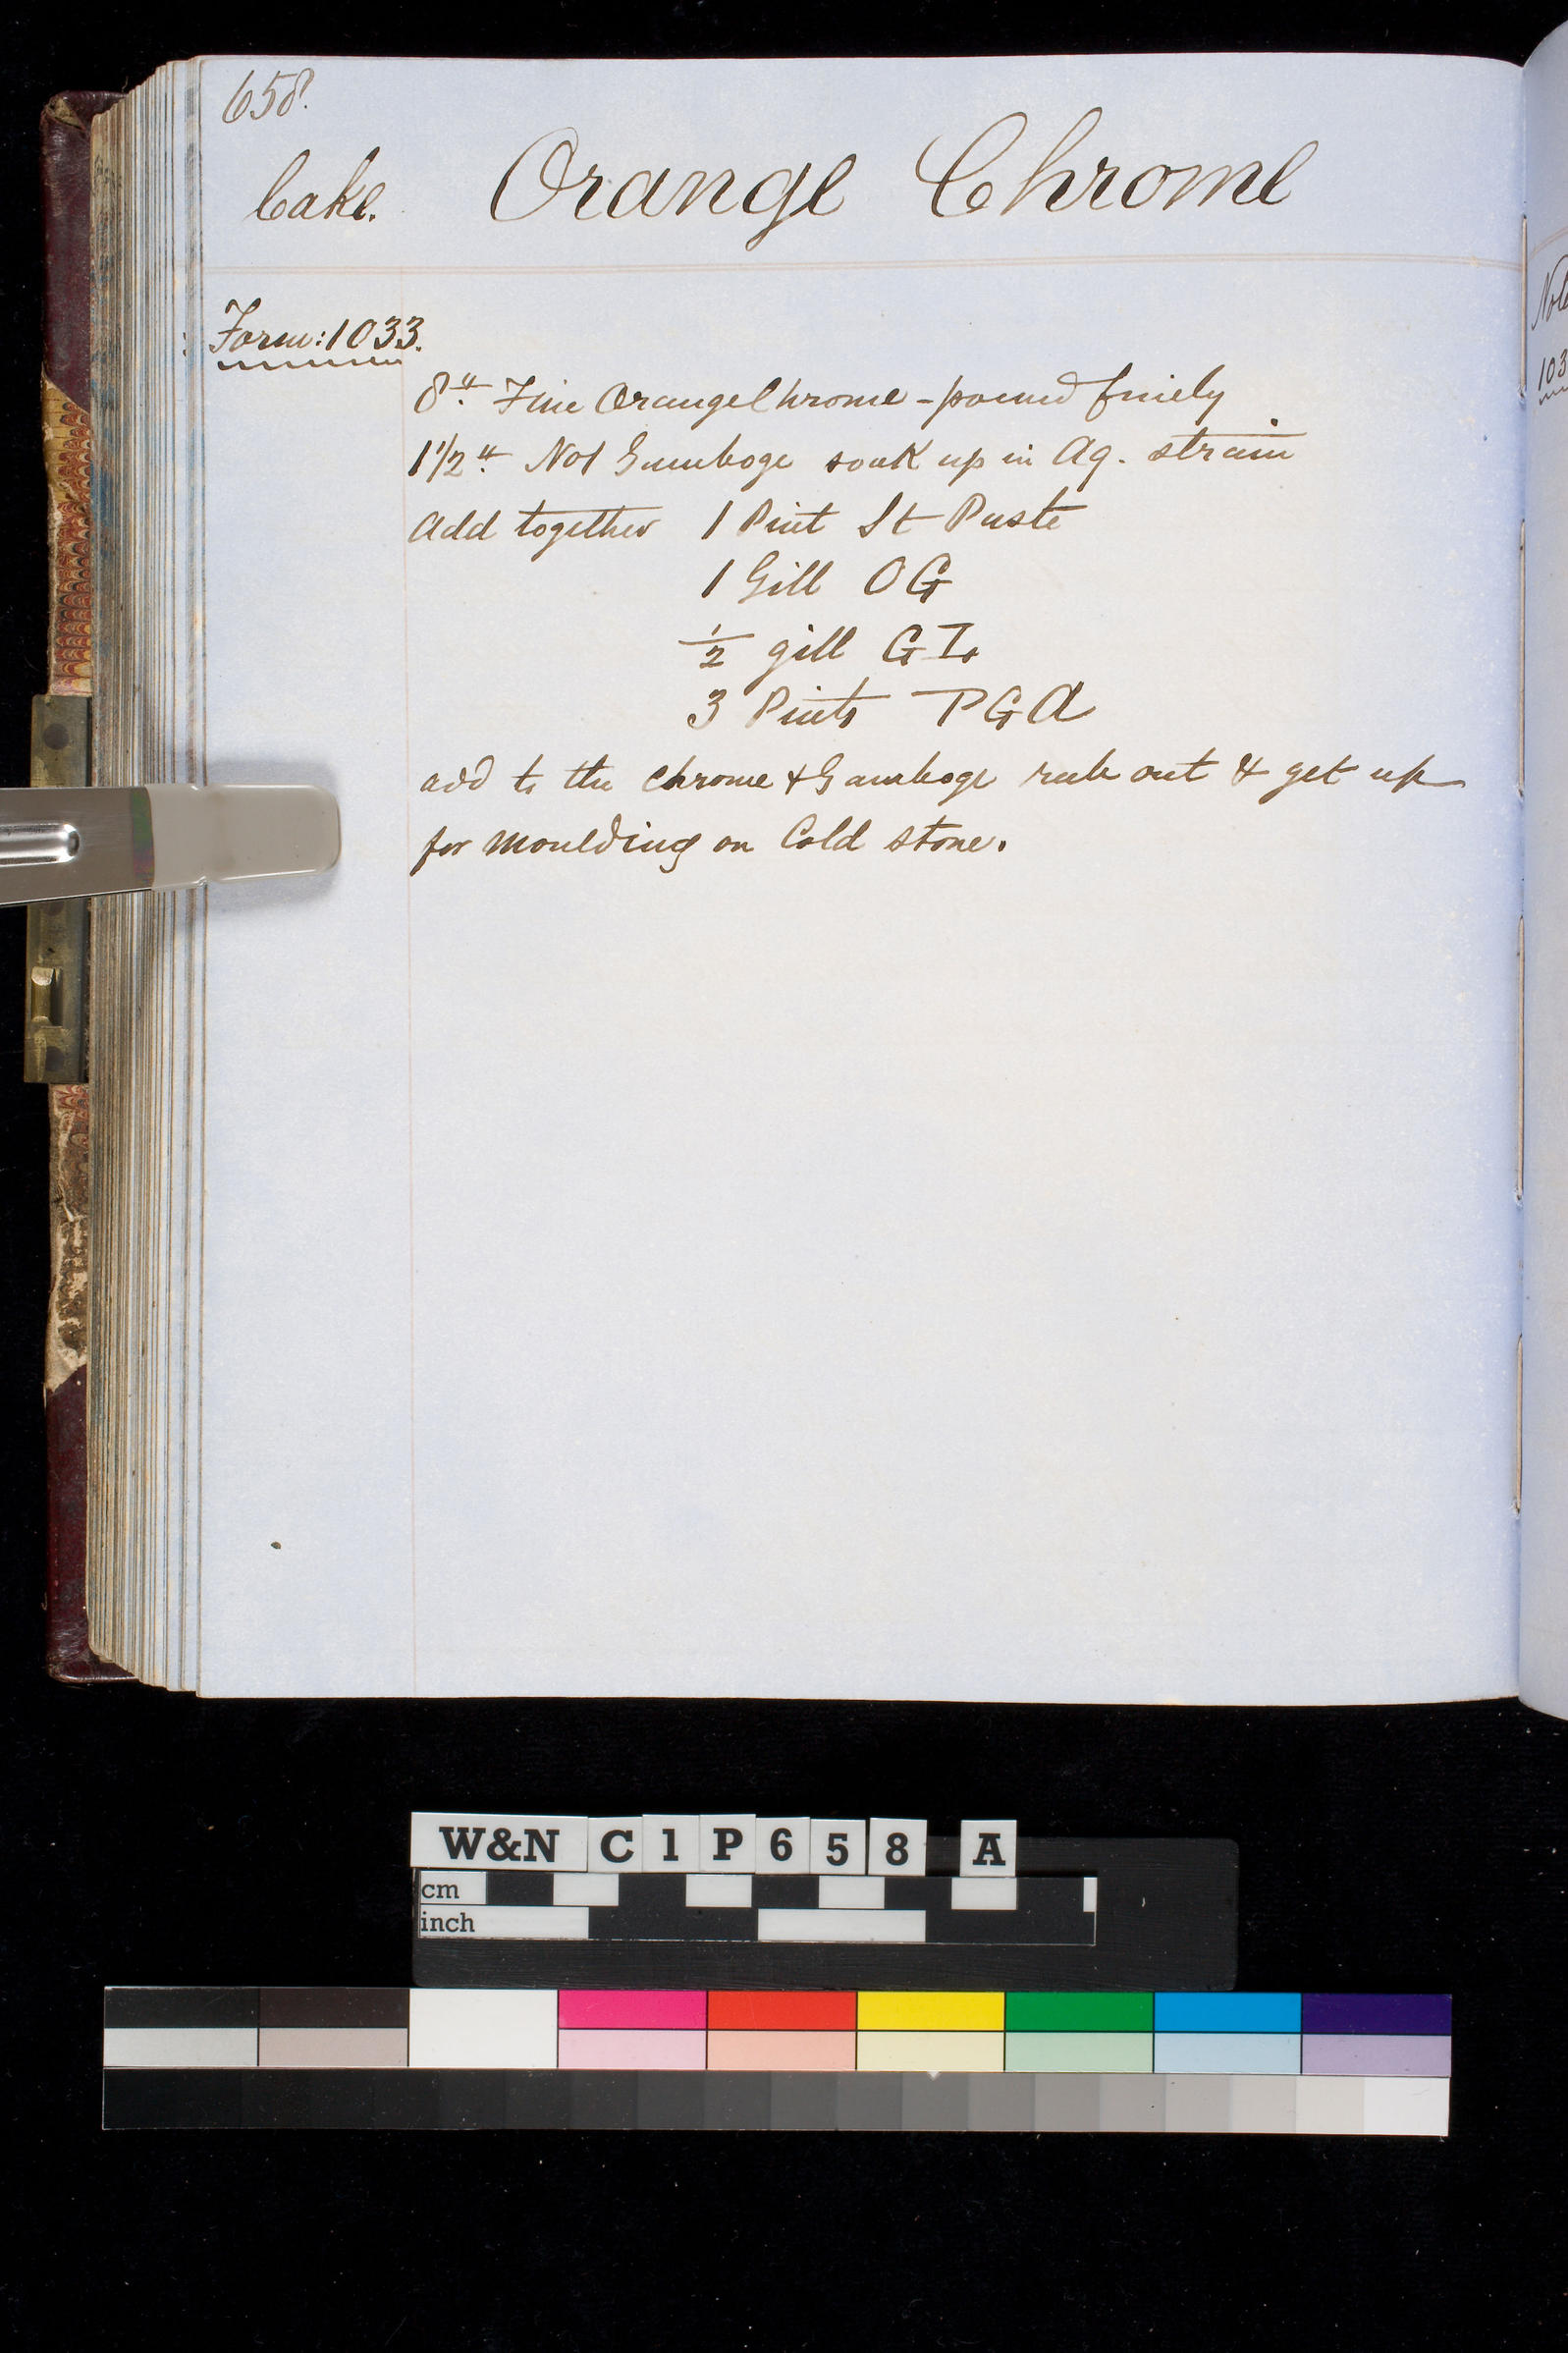 658.
Cake. Orange Chrome
Form: 1033.
8 lb Fine Orange Chrome - pound finely
1 1/2 lb No 1 Gumboge soak up in Aq. strain
Add together 1 Pint St Paste
1 Gill OG
1/2 gill GI.
3 Pints PGA
add to the Chrome & Gamboge rub out & get up
for moulding on Cold stone.
Note
103
W&N C1P658 A
cm
inch